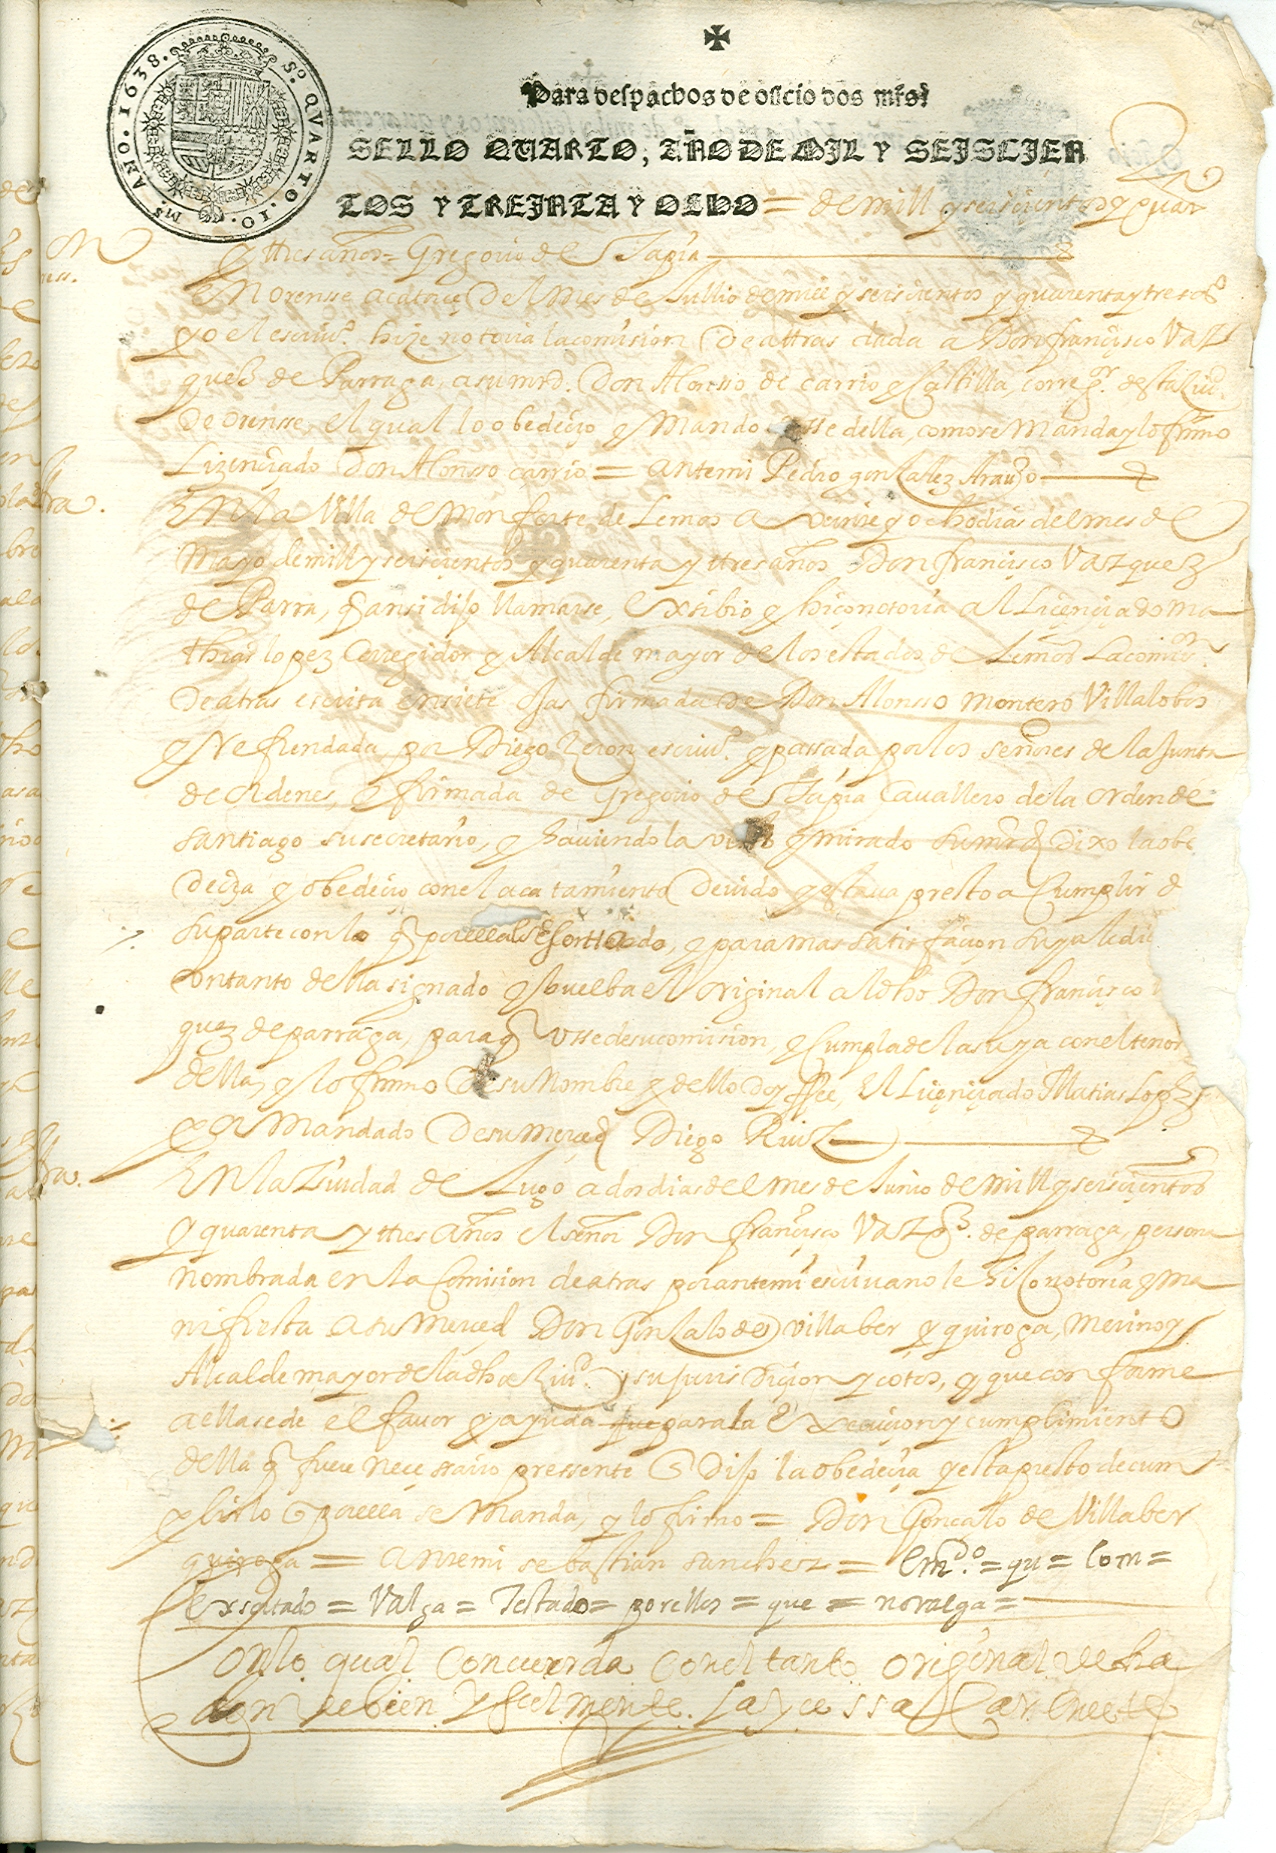 ✠
Para despachos de oficio dos mrs̄
SELLO QUARTO, AÑO DE MIL Y SEISCIEN
TOS Y TREINTA Y OCHO = de mill y seiscientos y quar
Sº QVARTO. 10. Ms. ANO. 1638.
y tres años = Gregorio de Tapia
En orensse a catorçe del mes de Jullio de mill y seiscientos y quarenta y tres as
yo el escrivº hize notoria la comision de attras dada a Don françisco Vaz
quez de Parraga, a su mrd. Don Alonsso de carrio y Castilla, corregor. desta ciud.
De orensse, el qual lo obedeçio y Mando usse della, como se Manda y lo firmo
Lizençiado Don Alonsso carrio = ante mi Pedro gonçalez Araujo
En la Villa de Monforte de Lemos a veinte y ocho dias del mes de
Mayo de mill y seiscientos y quarenta y tres años Don françisco Vazquez
de Parra, q ansi dijo llamarse, exsibio y hiço notoria al Liçençiado ma
thias lopez Corregidor y Alcalde mayor de los estados de Lemos La comion
De atras escrita en siete ojas firmada de Don Alonsso montero Villalobos
y Refrendada por Diego Zeron escrivº. y passada por los señores de la Junta
de ordenes, y firmada de Gregorio de Tapia Cavallero de la orden de
santiago su secretario, y haviendola visto y mirado su mrd Dixo la obe
Decia y obedeçio con el acatamiento Devido y estava presto a Cumplir de
su parte con lo q por ella es Esortado, y para mas satisfaçion suya le di
contanto della signado y buelba el original al dho Don françisco
quez de parraga, para q usse de su comision, y Cumpla de la suya con el tenor
della, y lo firmo de su Nombre y dello Doy ffee, El Liçençiado Matias Lopez
por Mandado De su Merced Diego Ruiz
En la Ziudad de Lugo a dos dias del mes de Junio de mill y seiscientos
y quarenta y tres años el señor Don françisco Vazqz. de parraga, persona
nombrada en la Comision de atras por ante mi escrivano le hiço notoria y ma
nifiesta a su Merced Don Gonçalo de villaber y quiroga, Merino y
Alcalde mayor de la dha ziud. y su juris diçion y cotos, y que con forme
a ella se de el favor y ayuda que para la Exsecucion y cumplimiento
della q fuere neçessario pressente y Dijo la obedecia y esta presto de cum
plirlo q por ella se Manda, y lo firmo = Don Gonçalo de Villaber
quiroga = ante mi sebastian sanchez = Emdo. = qu = Com =
Exsortado = Valga = Testado = por ellos = que = no valga =
Con lo qual Concuerda Con el tanto original de ha